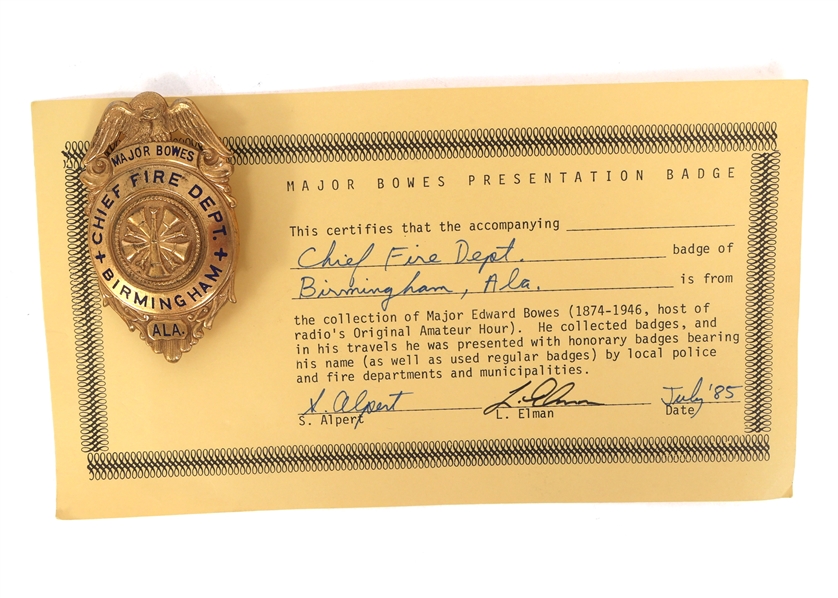 MAJOR BOWES
CHIEF FIRE DEPT.
BIRMINGHAM
ALA.
MAJOR BOWES PRESENTATION BADGE
This certifies that the accompanying
Chief Fire Dept. badge of
Birmingham, Ala. is from
the collection of Major Edward Bowes (1874-1946, host of
radio's Original Amateur Hour). He collected badges, and
in his travels he was presented with honorary badges bearing
his name (as well as used regular badges) by local police
and fire departments and municipalities.
S. Alpert L. Elman July '85
S. Alpert L. Elman Date